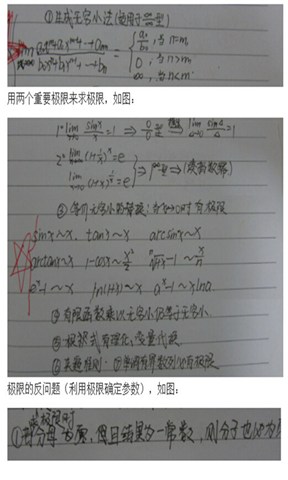 ①生成无穷小法(适用于 型)
lim a₀xᵐ+a₁xᵐ⁻¹+…+aₘ / b₀xⁿ+b₁xⁿ⁻¹+…+bₙ = { a₀/b₀, 当n=m,
0, 当n>m
∞, 当n<m
用两个重要极限来求极限,如图:
1° lim sinx/x = 1 ⇒ 0/0型 lim sin△/△ = 1
2° lim (1+1/x)ˣ = e
lim (1+x)^(1/x) = e
③等价无穷小的替换:当x→0时 有极限
sinx~x, tanx~x arcsinx~x
arctanx~x 1-cosx~x²/2 ⁿ√(1+x)-1~x/n
eˣ-1~x ln(1+x)~x aˣ-1~xlna
④有限函数乘以无穷小仍等于无穷小
⑤根式有理化,变量代换
⑥夹逼准则 ⑦单调有界数列必有极限
极限的反问题(利用极限确定参数),如图:
求极限时
①若分母为零,但且结果为一常数,则分子也必为